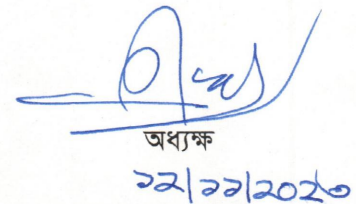 অধ্যক্ষ
১২/১১/২০২৩